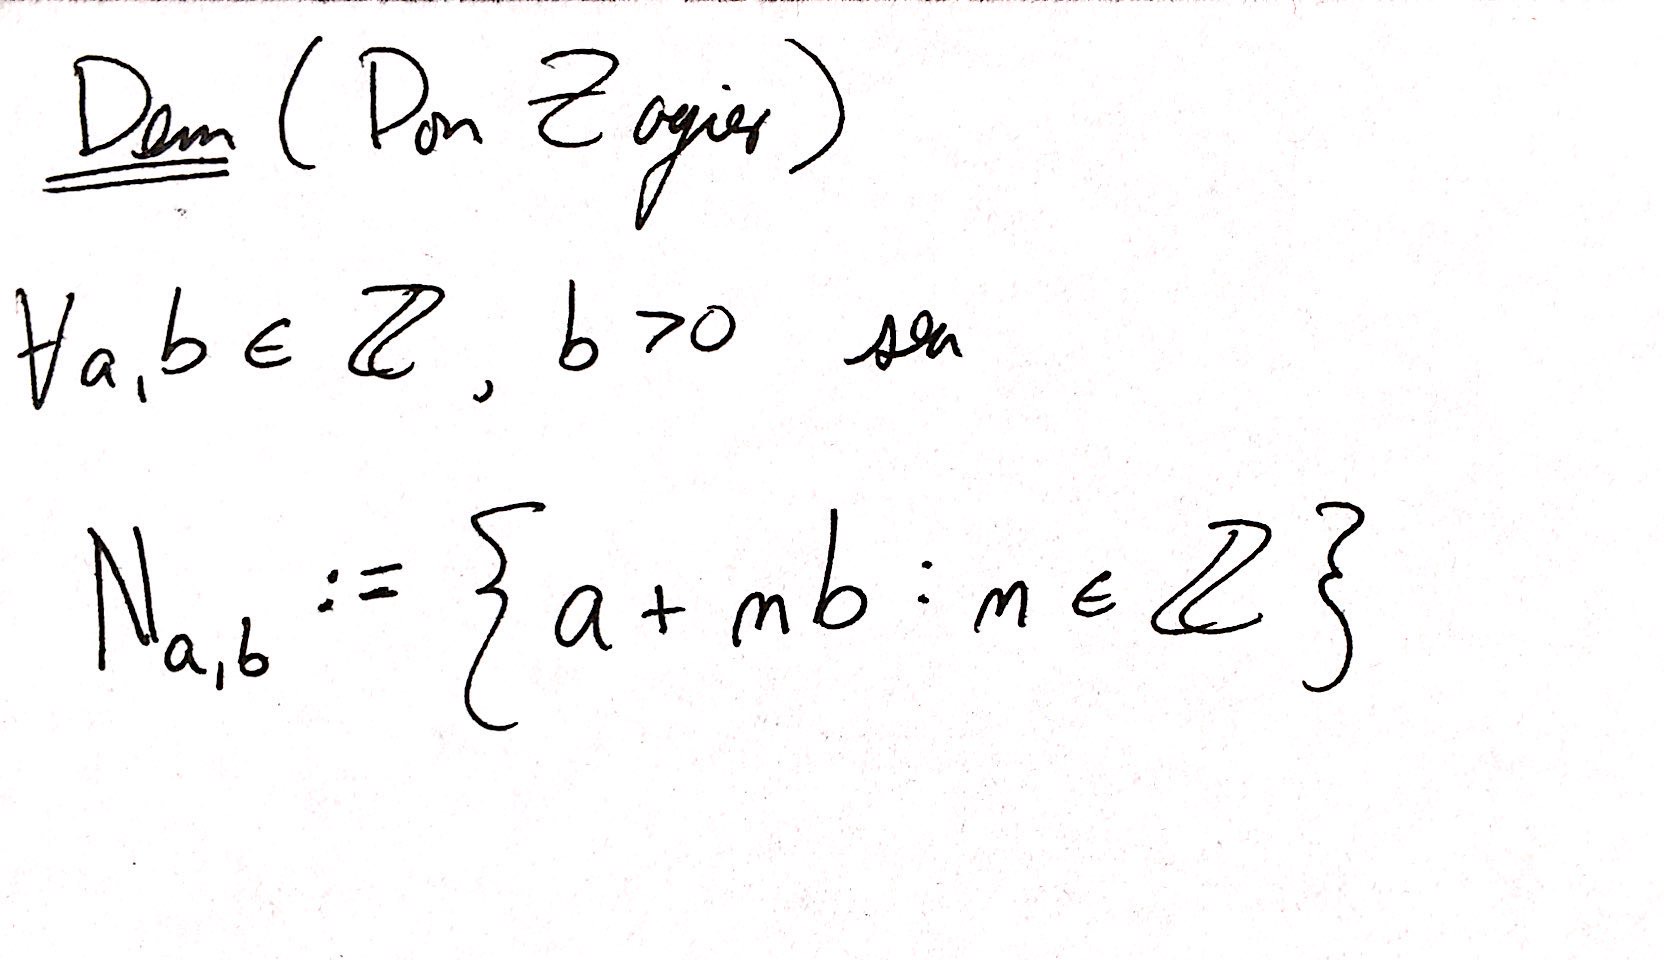 Dem (Don Zagier)
∀a,b ∈ ℤ, b>0 sea
N_{a,b} := {a + nb : n ∈ ℤ}